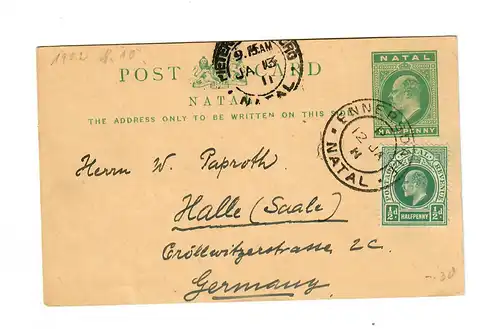 1902 № 10
POST CARD
NATAL
THE ADDRESS ONLY TO BE WRITTEN ON THIS SIDE
9.15 AM
JA 13
11
NATAL
NATAL
HALFPENNY
ENNERSDALE
12 JA
11
NATAL
POSTAGE & REVENUE
½d HALFPENNY ½d
Herrn W. Paproth
Halle (Saale)
Cröllwitzerstrasse 2c.
Germany
-.30